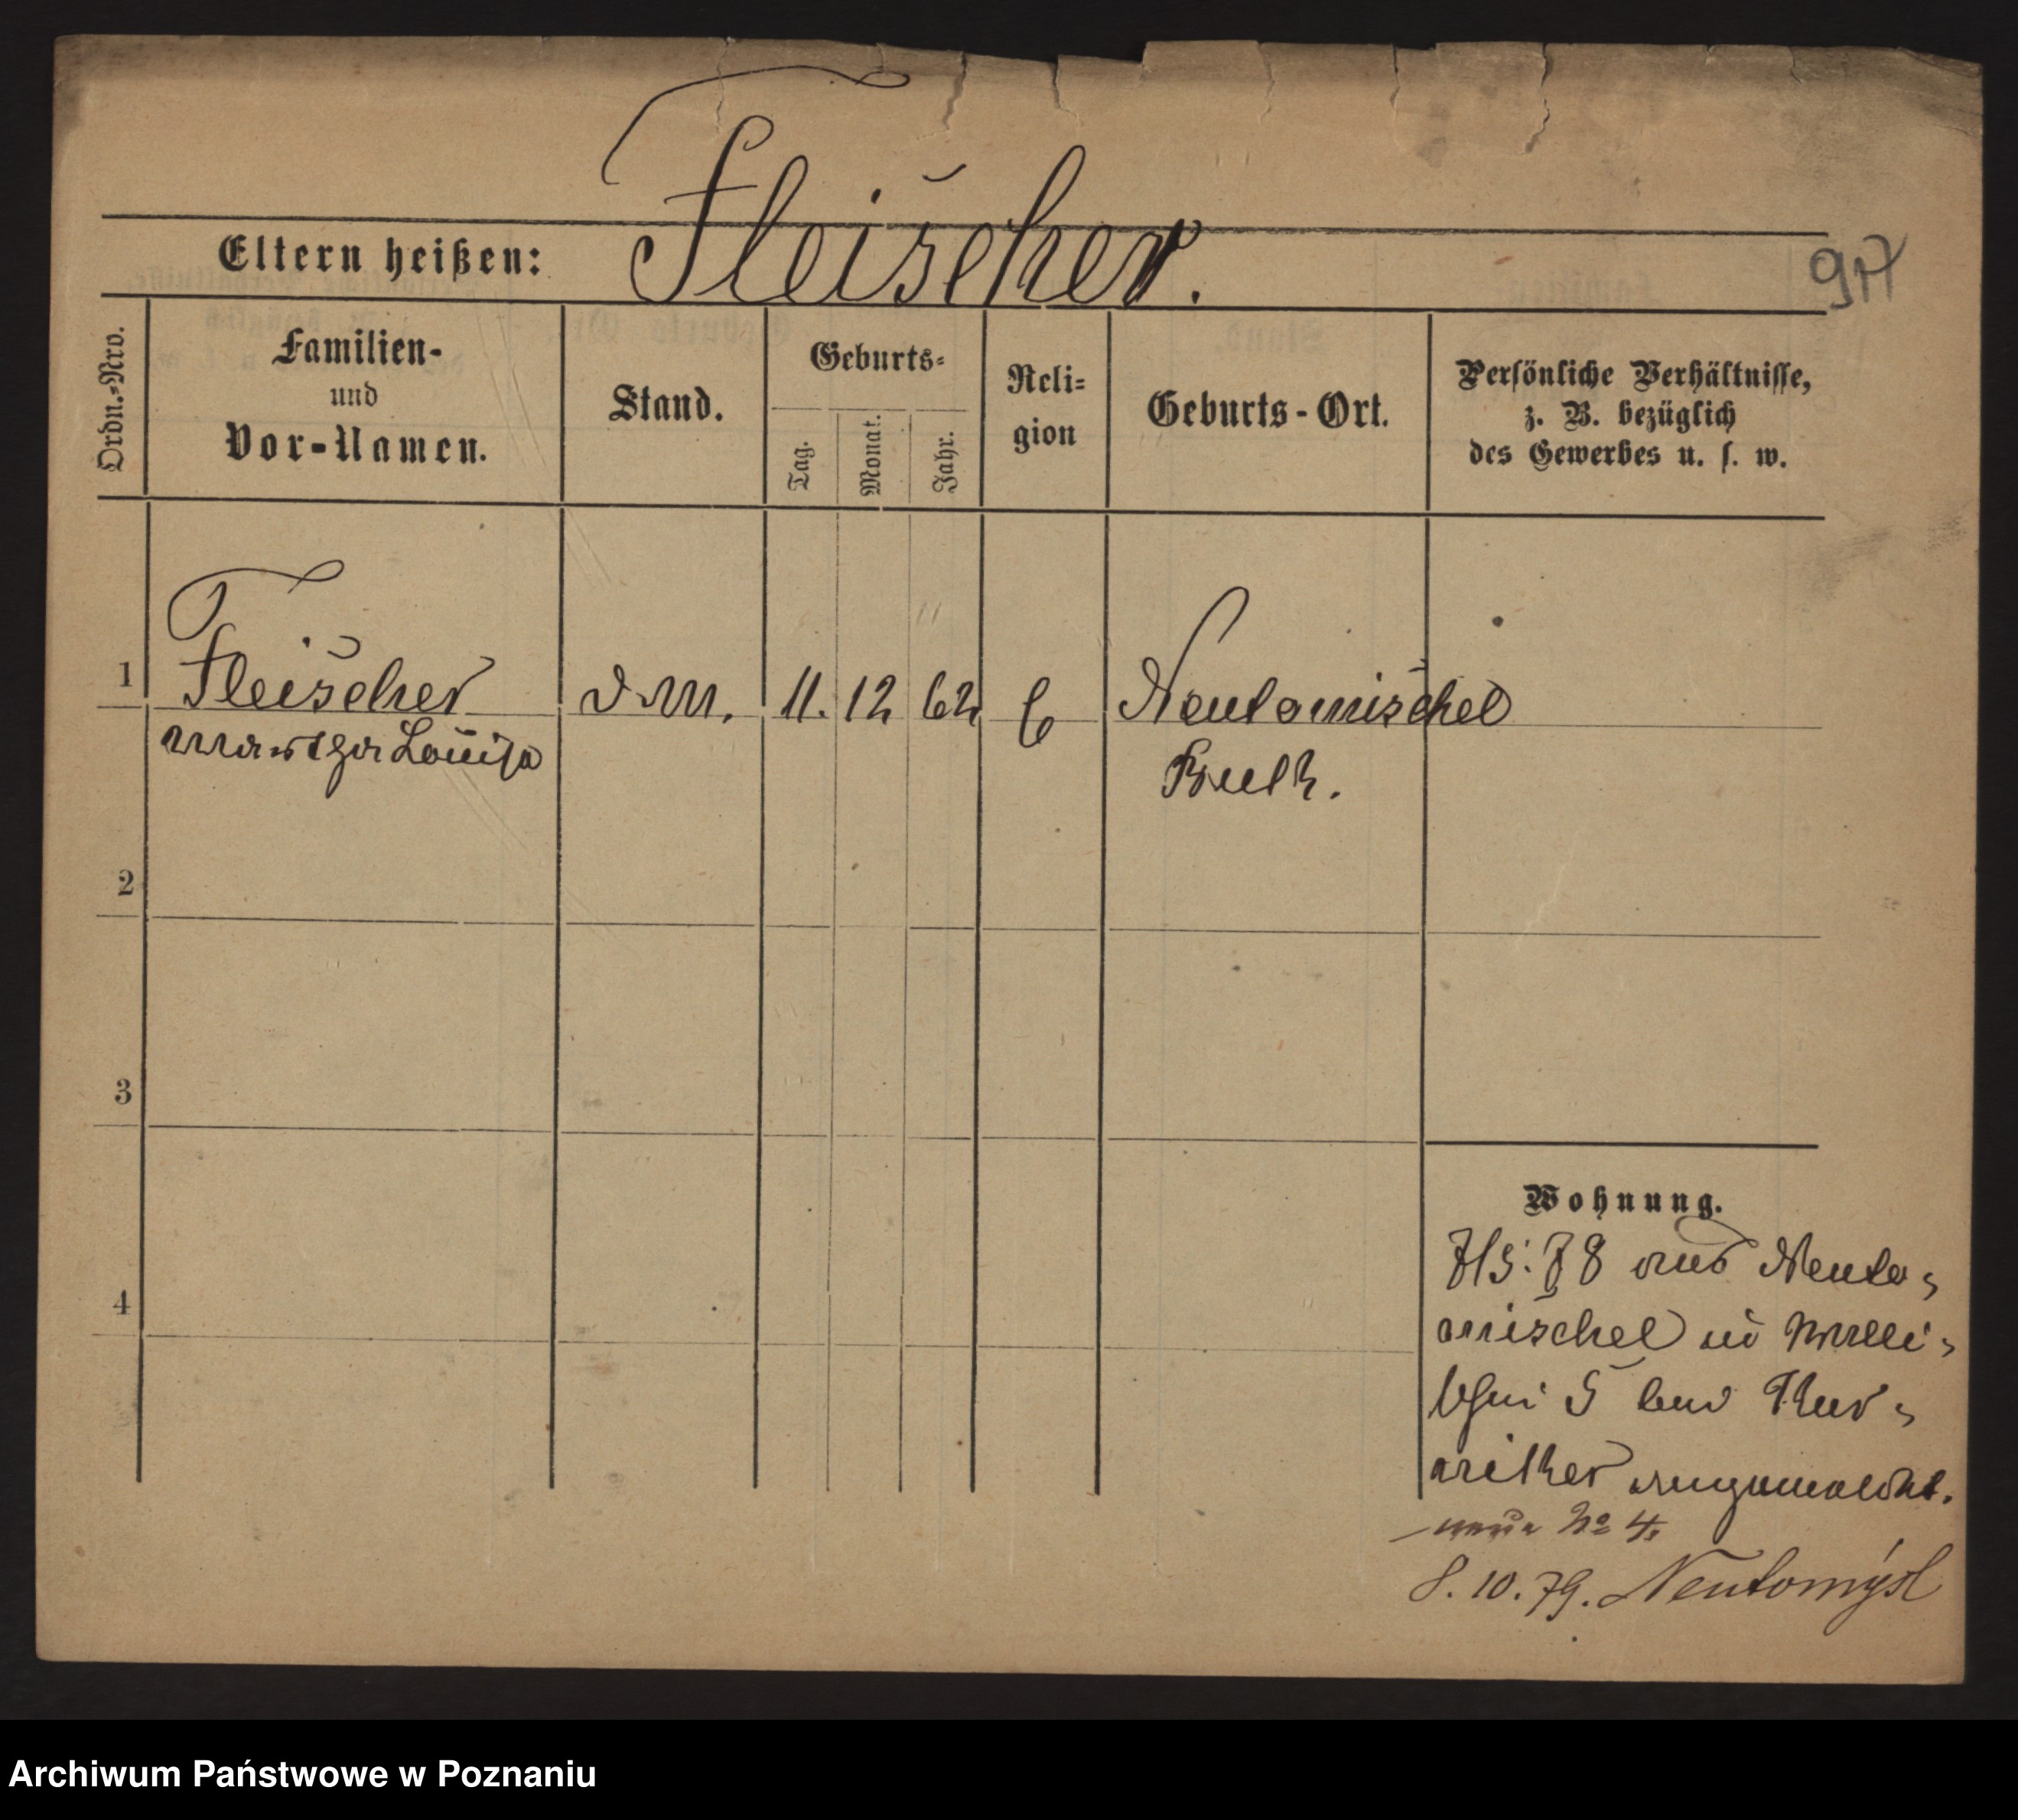 Fleischer.
Eltern heißen:
917
Ordn.-Nro.
Familien-
und
Vor-Namen.
Stand.
Geburts-
Tag.
Monat.
Jahr.
Reli-
gion
Geburts-Ort.
Persönliche Verhältnisse,
z. B. bezüglich
des Gewerbes u. s. w.
1
Fleischer
Martha Louise
11. 12 62
Neutomischel
2
3
4
Wohnung.
78 aus Neuto-
mischel in
5 bei
angemeldet.
neue No 4
8. 10. 79. Neutomysl
Archiwum Państwowe w Poznaniu